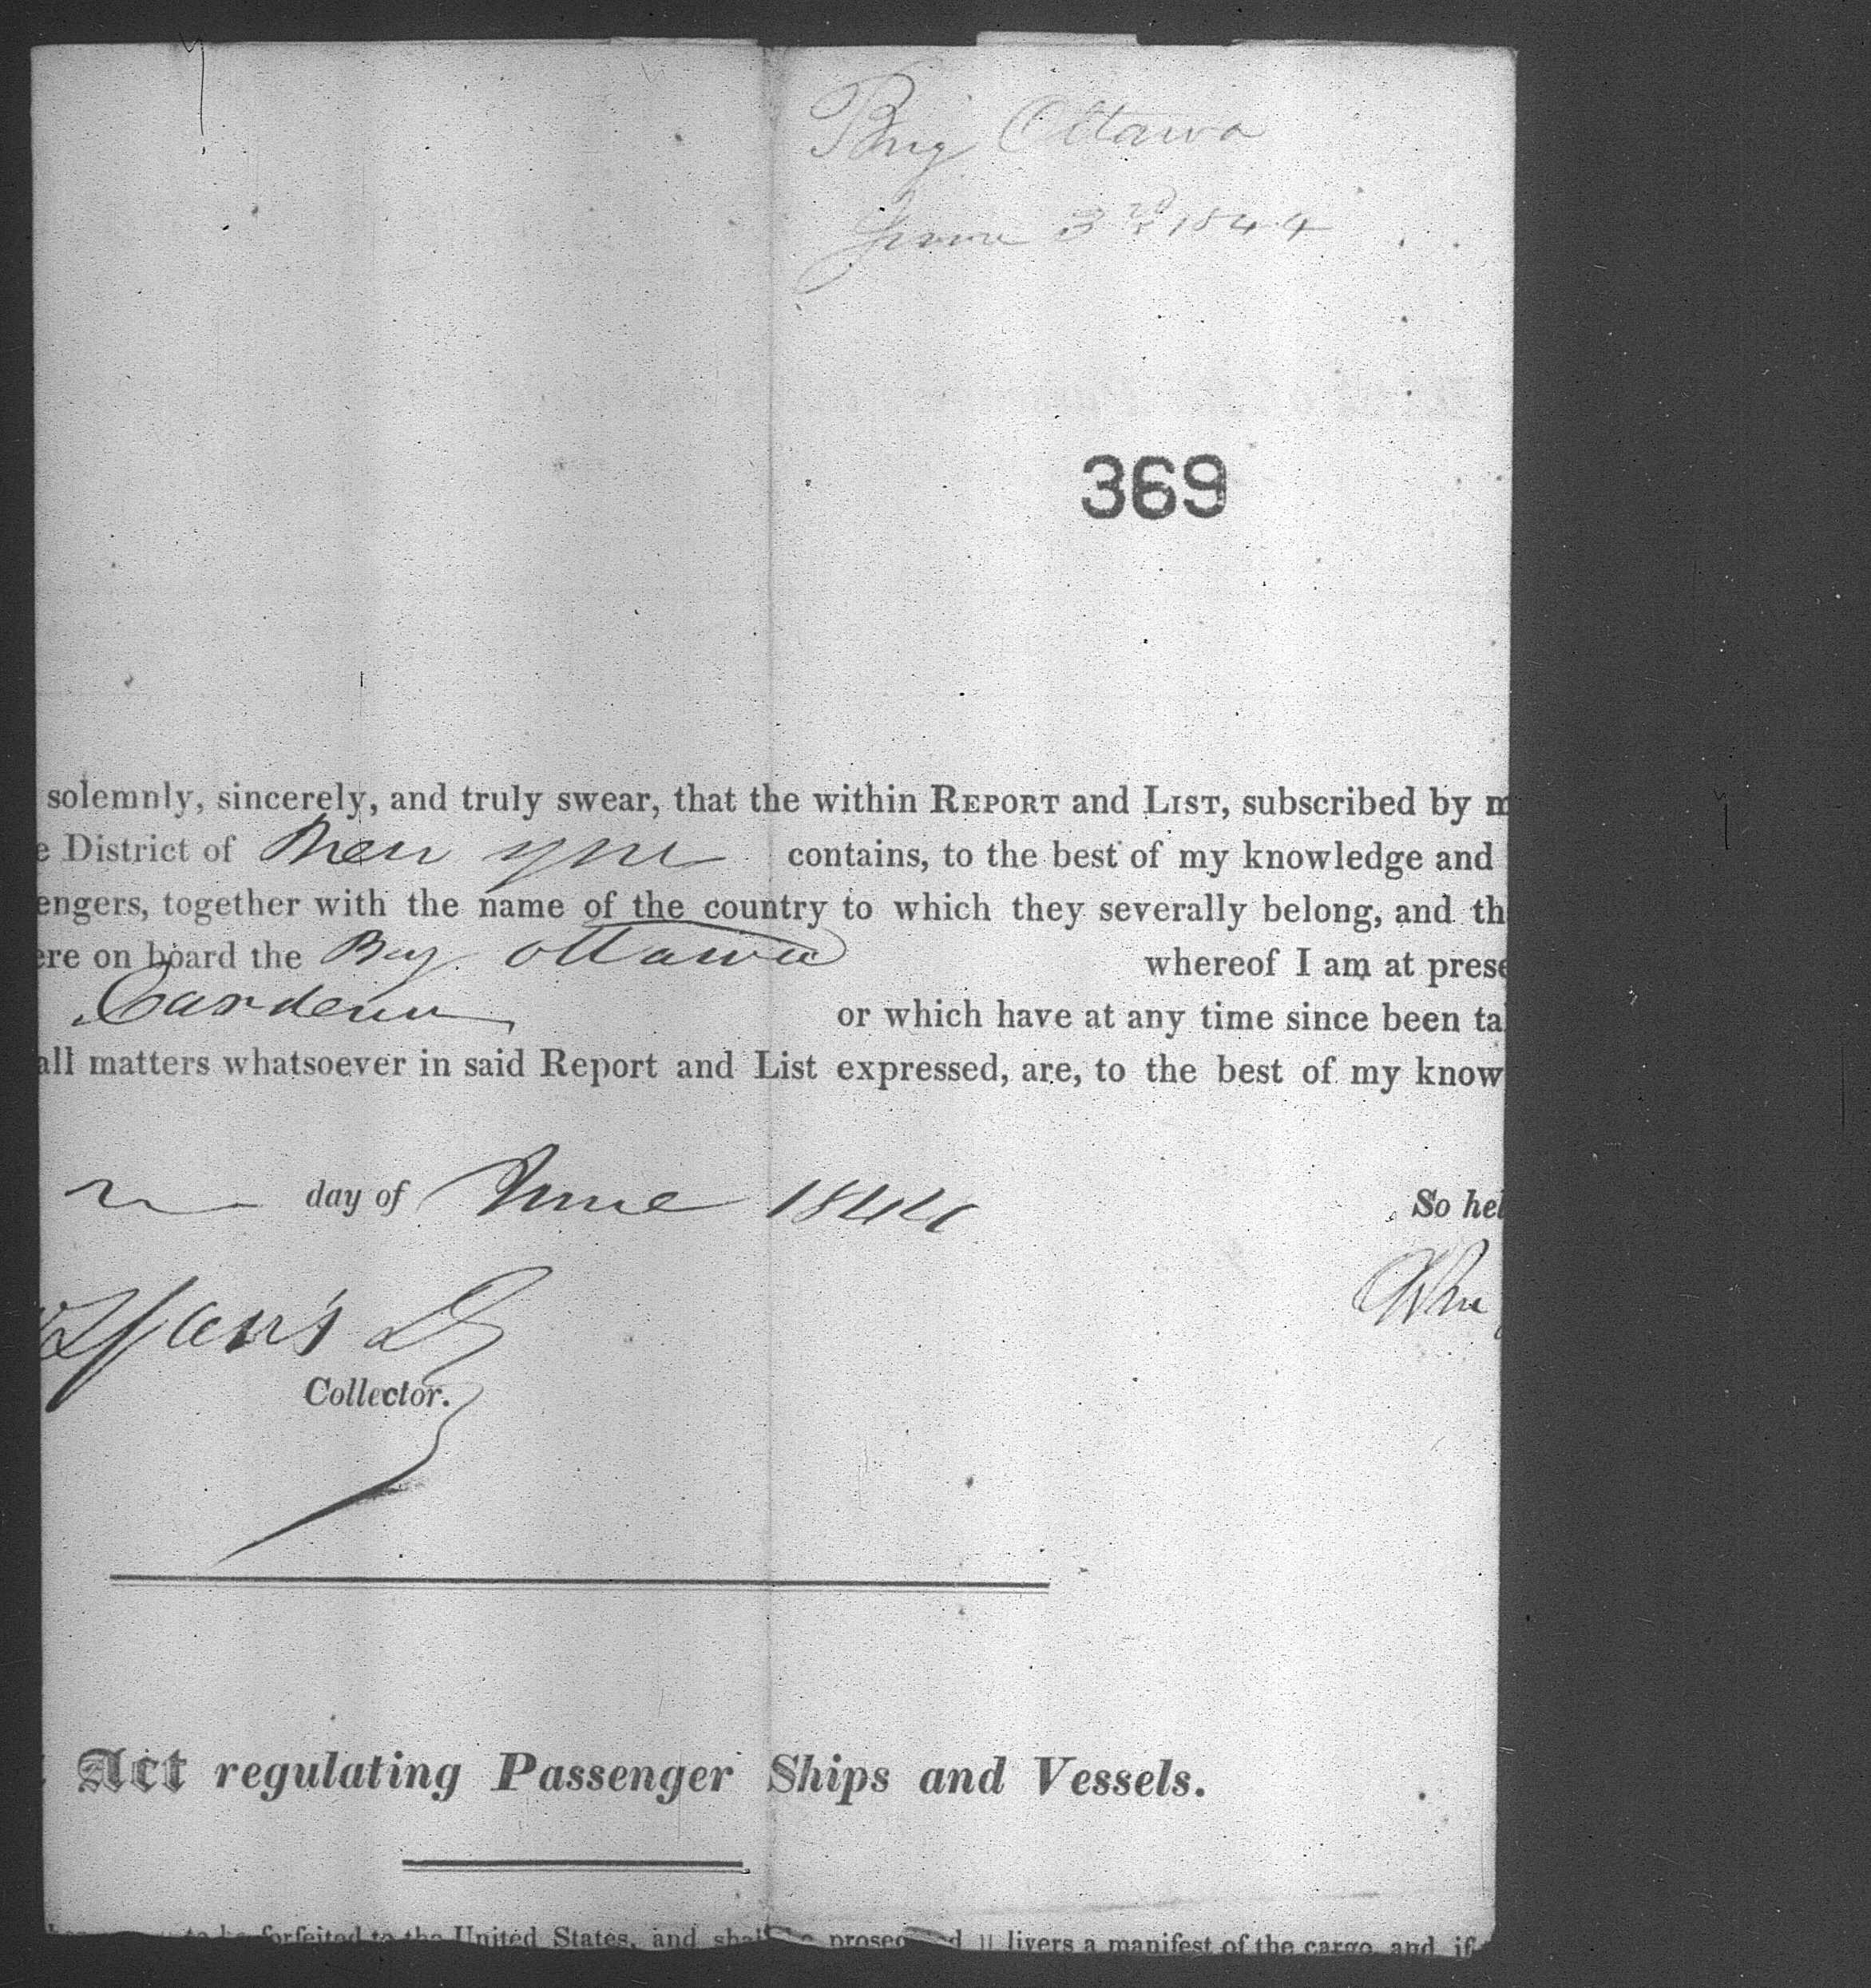 Brig Ottawa
June 3rd 1844
369
solemnly, sincerely, and truly swear, that the within REPORT and LIST, subscribed by m
e District of New York contains, to the best of my knowledge and
engers, together with the name of the country to which they severally belong, and th
ere on board the Brig Ottawa whereof I am at prese
or which have at any time since been ta
all matters whatsoever in said Report and List expressed, are, to the best of my know
day of June 1844 So hel
Collector.
Act regulating Passenger Ships and Vessels.
to be forfeited to the United States, and shall livers a manifest of the cargo, and if